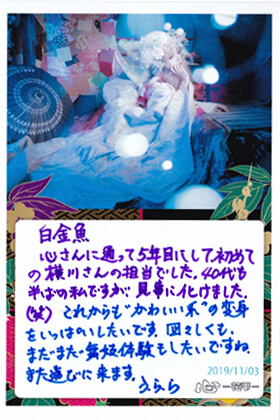 白金魚
心さんに通って5年目にして、初めて
の横川さんの担当でした。40代も
半ばの私ですが、見事に化けました。
(笑) これからも"かわいい系"の変身
をいっぱいしたいです。図々しくも、
まだまだ舞妓体験もしたいですね。
また遊びに来ます。 うらら
2019/11/03
心